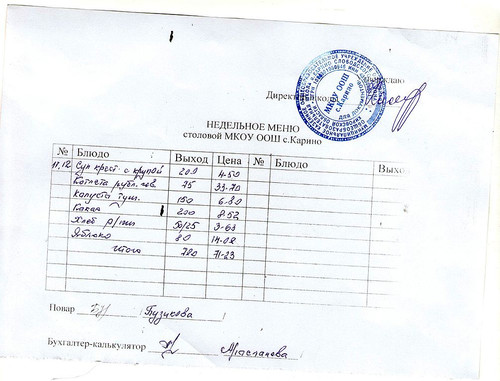 Утверждаю
Директор школы
МКОУ ООШ
с.Карино
НЕДЕЛЬНОЕ МЕНЮ
столовой МКОУ ООШ с.Карино
№ Блюдо Выход Цена № Блюдо Выхо
11,12 Суп крест. с крупой 200 4-50
Котлета рубл. гов. 75 33-70
Капуста туш. 150 6-80
Какао 200 8-52
Хлеб р/пш 50/25 3-63
Яблоко 80 14-08
итого 780 71-23
Повар Бузикова
Бухгалтер-калькулятор